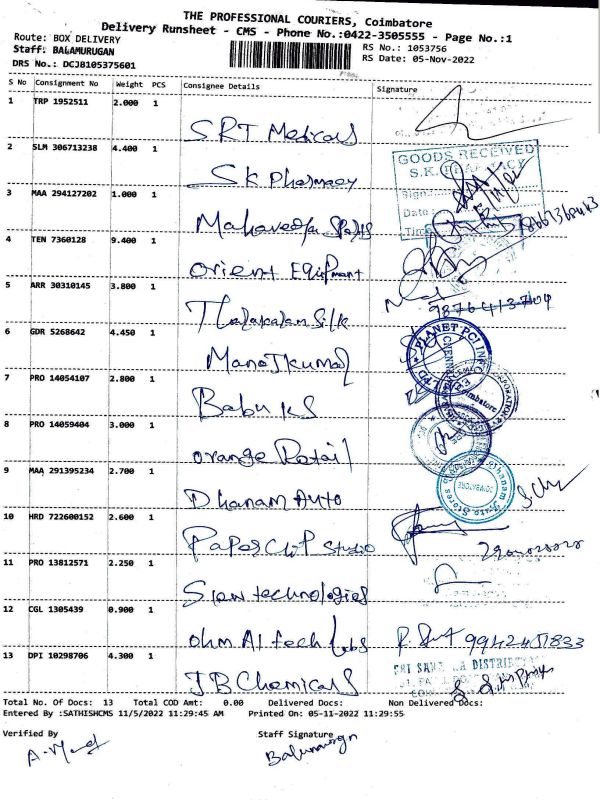 THE PROFESSIONAL COURIERS, Coimbatore
Delivery Runsheet - CMS - Phone No.:0422-3505555 - Page No.:1
Route: BOX DELIVERY
Staff: BALAMURUGAN
DRS No.: DCJB105375601
RS No.: 1053756
RS Date: 05-Nov-2022
S No Consignment No Weight PCS Consignee Details Signature
1 TRP 1952511 2.000 1 SRT Medicals
2 SLM 306713238 4.400 1 SK Pharmacy
GOODS RECEIVED
S.K. PHARMACY
Sign
Date
Time
3 MAA 294127202 1.000 1
4 TEN 7360128 9.400 1 Orient Equipment
5 ARR 30310145 3.800 1 Silk
9876413704
6 GDR 5268642 4.450 1 Manojkumar
PLANET PCI INC
7 PRO 14054107 2.800 1 Babu KS
8 PRO 14059404 3.000 1 Orange Retail
9 MAA 291395234 2.700 1 Dhanam Auto
Dhanam Auto Stores
COIMBATORE
10 HRD 722600152 2.600 1 Paperclip Studio
11 PRO 13812571 2.250 1 technologies
12 CGL 1305439 0.900 1 Ohm AI tech Labs
13 DPI 10298706 4.300 1 JB Chemicals
Total No. Of Docs: 13 Total COD Amt: 0.00 Delivered Docs: Non Delivered Docs:
Entered By :SATHISHCMS 11/5/2022 11:29:45 AM Printed On: 05-11-2022 11:29:55
Verified By Staff Signature